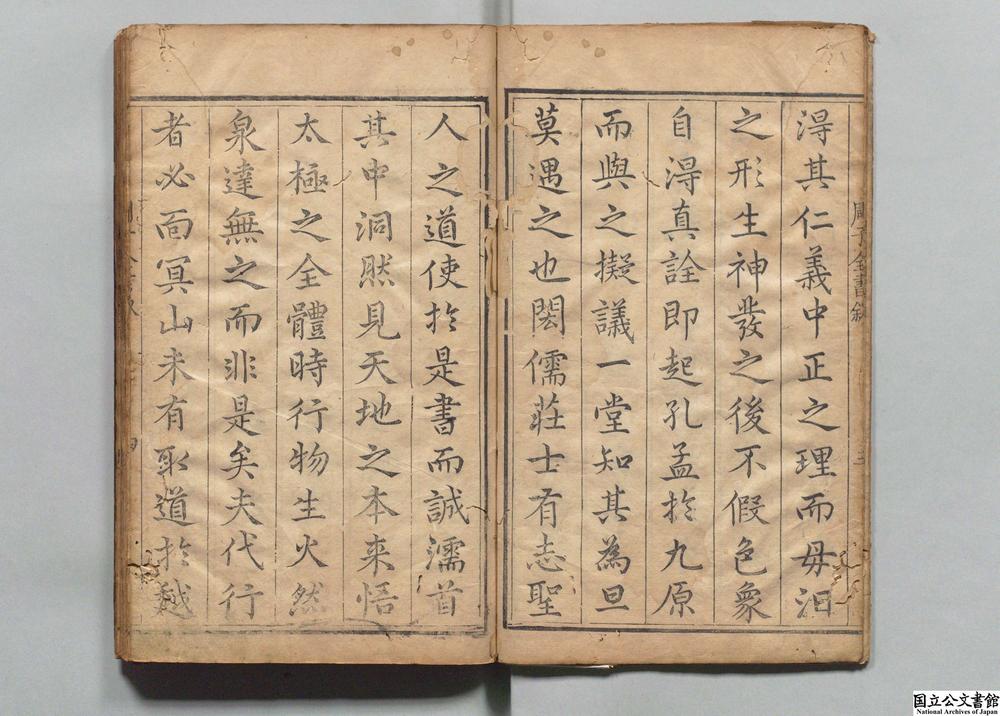 得其仁義中正之理而毋汩
之形生神發之後不假色象
自得真詮即起孔孟於九原
而與之擬議一堂知其為旦
莫遇之也閎儒莊士有志聖
人之道使於是書而誠濡首
其中洞然見天地之本來悟
太極之全體時行物生火然
泉達無之而非是矣夫代行
者必面冥山未有取道於越
周子全書敘
国立公文書館
National Archives of Japan